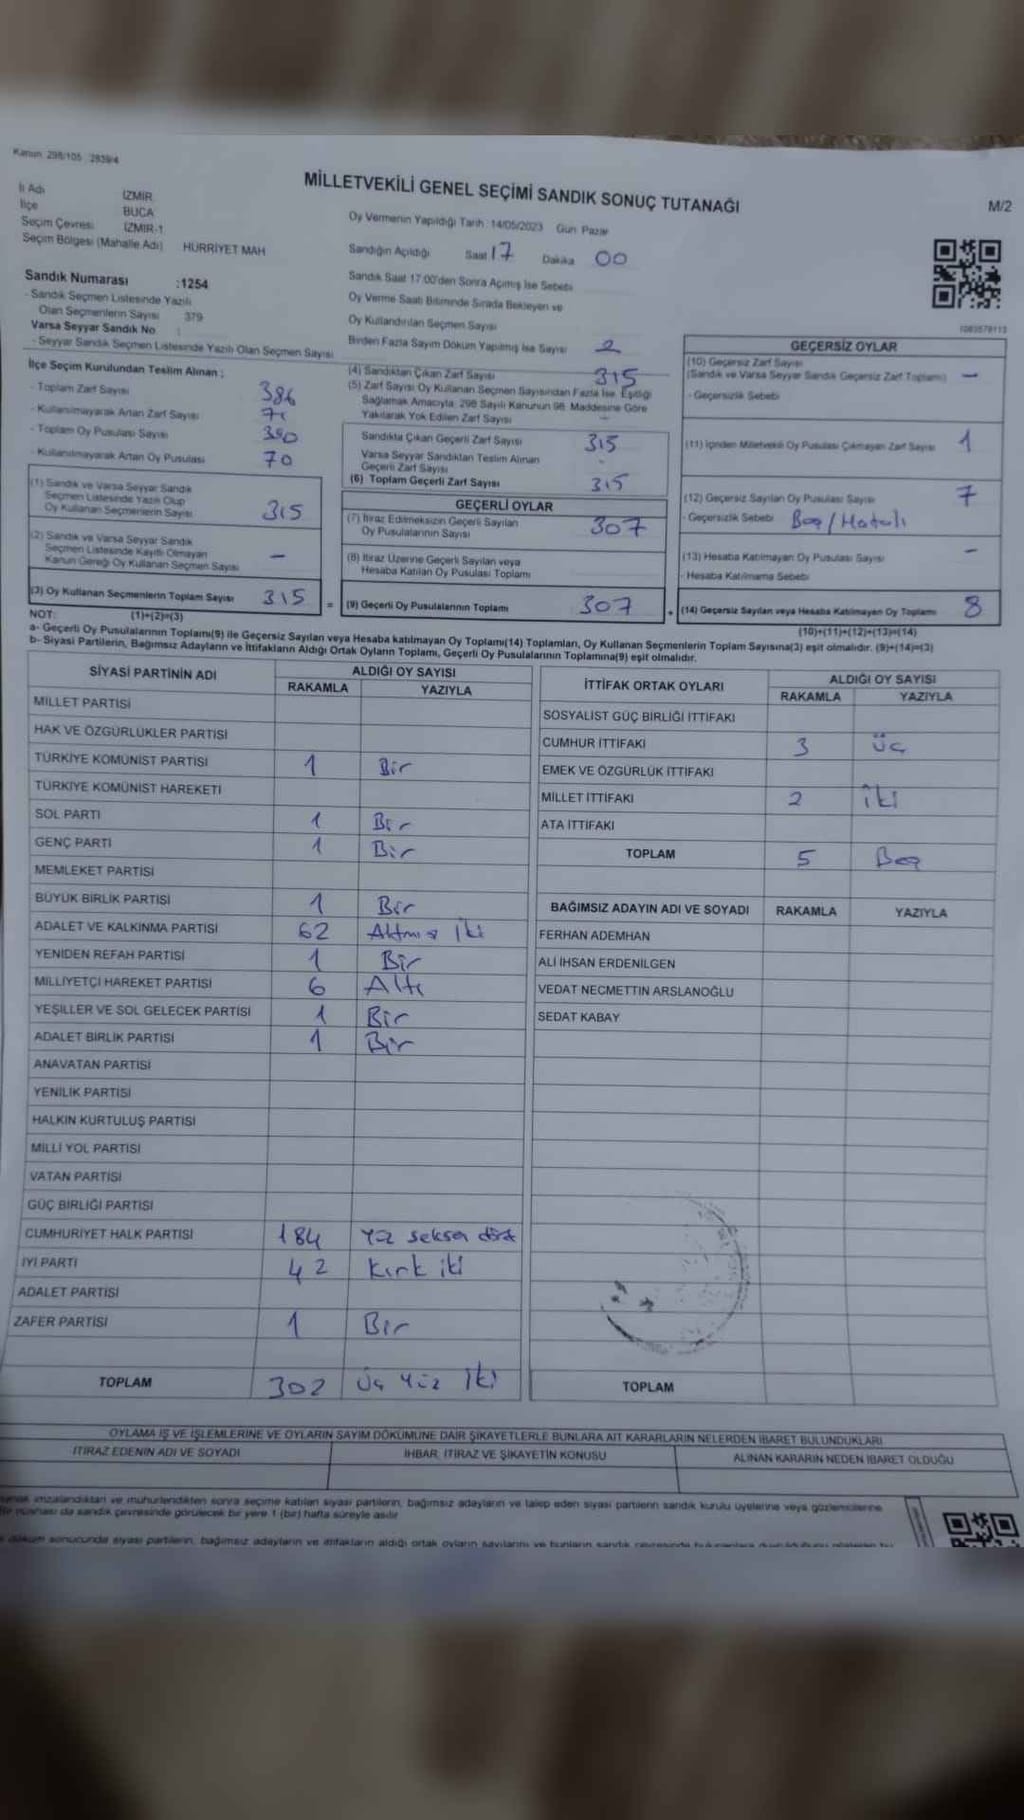 Kanun 298/105 2839/4
MİLLETVEKİLİ GENEL SEÇİMİ SANDIK SONUÇ TUTANAĞI
M/2
İl Adı İZMİR
İlçe BUCA
Seçim Çevresi İZMİR-1
Seçim Bölgesi (Mahalle Adı) HÜRRİYET MAH
Oy Vermenin Yapıldığı Tarih :14/05/2023 Gün Pazar
Sandığın Açıldığı Saat 17 Dakika 00
Sandık Saat 17:00'den Sonra Açımış İse Sebebi
Oy Verme Saati Bitiminde Sırada Bekleyen ve
Oy Kullandırılan Seçmen Sayısı
Birden Fazla Sayım Döküm Yapılmış İse Sayısı 2
Sandık Numarası :1254
- Sandık Seçmen Listesinde Yazılı
Olan Seçmenlerin Sayısı 379
Varsa Seyyar Sandık No :
- Seyyar Sandık Seçmen Listesinde Yazılı Olan Seçmen Sayısı
İlçe Seçim Kurulundan Teslim Alınan :
- Toplam Zarf Sayısı 386
- Kullanılmayarak Artan Zarf Sayısı
- Toplam Oy Pusulası Sayısı
- Kullanılmayarak Artan Oy Pusulası 70
(1) Sandık ve Varsa Seyyar Sandık
Seçmen Listesinde Yazılı Olup
Oy Kullanan Seçmenlerin Sayısı 315
(2) Sandık ve Varsa Seyyar Sandık
Seçmen Listesinde Kayıtlı Olmayan
Kanun Gereği Oy Kullanan Seçmen Sayısı -
(3) Oy Kullanan Seçmenlerin Toplam Sayısı 315 =
(4) Sandıktan Çıkan Zarf Sayısı 315
(5) Zarf Sayısı Oy Kullanan Seçmen Sayısından Fazla İse, Eşitliği
Sağlamak Amacıyla; 298 Sayılı Kanunun 98. Maddesine Göre
Yakılarak Yok Edilen Zarf Sayısı -
Sandıkta Çıkan Geçerli Zarf Sayısı 315
Varsa Seyyar Sandıktan Teslim Alınan
Geçerli Zarf Sayısı -
(6) Toplam Geçerli Zarf Sayısı 315
GEÇERLİ OYLAR
(7) İtiraz Edilmeksizin Geçerli Sayılan
Oy Pusulasının Sayısı 307
(8) İtiraz Üzerine Geçerli Sayılan veya
Hesaba Katılan Oy Pusulası Toplamı
(9) Geçerli Oy Pusulalarının Toplamı 307 +
GEÇERSİZ OYLAR
(10) Geçersiz Zarf Sayısı
(Sandık ve Varsa Seyyar Sandık Geçersiz Zarf Toplamı) -
- Geçersizlik Sebebi
(11) İçinden Milletvekili Oy Pusulası Çıkmayan Zarf Sayısı 1
(12) Geçersiz Sayılan Oy Pusulası Sayısı 7
- Geçersizlik Sebebi Boş/Hatalı
(13) Hesaba Katılmayan Oy Pusulası Sayısı -
- Hesaba Katılmama Sebebi
(14) Geçersiz Sayılan veya Hesaba Katılmayan Oy Toplamı 8
NOT: (1)+(2)=(3)
(10)+(11)+(12)+(13)=(14)
a- Geçerli Oy Pusulalarının Toplamı(9) ile Geçersiz Sayılan veya Hesaba katılmayan Oy Toplamı(14) Toplamları, Oy Kullanan Seçmenlerin Toplam Sayısına(3) eşit olmalıdır. (9)+(14)=(3)
b- Siyasi Partilerin, Bağımsız Adayların ve İttifakların Aldığı Ortak Oyların Toplamı, Geçerli Oy Pusulalarının Toplamına(9) eşit olmalıdır.
SİYASİ PARTİNİN ADI ALDIĞI OY SAYISI
RAKAMLA YAZIYLA
MİLLET PARTİSİ
HAK VE ÖZGÜRLÜKLER PARTİSİ
TÜRKİYE KOMÜNİST PARTİSİ 1 Bir
TÜRKİYE KOMÜNİST HAREKETİ
SOL PARTİ 1 Bir
GENÇ PARTİ 1 Bir
MEMLEKET PARTİSİ
BÜYÜK BİRLİK PARTİSİ 1 Bir
ADALET VE KALKINMA PARTİSİ 62 Altmış İki
YENİDEN REFAH PARTİSİ 1 Bir
MİLLİYETÇİ HAREKET PARTİSİ 6 Altı
YEŞİLLER VE SOL GELECEK PARTİSİ 1 Bir
ADALET BİRLİK PARTİSİ 1 Bir
ANAVATAN PARTİSİ
YENİLİK PARTİSİ
HALKIN KURTULUŞ PARTİSİ
MİLLİ YOL PARTİSİ
VATAN PARTİSİ
GÜÇ BİRLİĞİ PARTİSİ
CUMHURİYET HALK PARTİSİ 184 Yüz seksen dört
İYİ PARTİ 42 Kırk iki
ADALET PARTİSİ
ZAFER PARTİSİ 1 Bir
TOPLAM 302 Üç Yüz İki
İTTİFAK ORTAK OYLARI ALDIĞI OY SAYISI
RAKAMLA YAZIYLA
SOSYALİST GÜÇ BİRLİĞİ İTTİFAKI
CUMHUR İTTİFAKI 3 Üç
EMEK VE ÖZGÜRLÜK İTTİFAKI
MİLLET İTTİFAKI 2 İki
ATA İTTİFAKI
TOPLAM 5 Beş
BAĞIMSIZ ADAYIN ADI VE SOYADI RAKAMLA YAZIYLA
FERHAN ADEMHAN
ALİ İHSAN ERDENİLGEN
VEDAT NECMETTİN ARSLANOĞLU
SEDAT KABAY
TOPLAM
OYLAMA İŞ VE İŞLEMLERİNE VE OYLARIN SAYIM DÖKÜMÜNE DAİR ŞİKAYETLERLE BUNLARA AİT KARARLARIN NELERDEN İBARET BULUNDUKLARI
İTİRAZ EDENİN ADI VE SOYADI
İHBAR, İTİRAZ VE ŞİKAYETİN KONUSU
ALINAN KARARIN NEDEN İBARET OLDUĞU
imzalandıktan ve mühürlendikten sonra seçime katılan siyasi partilerin, bağımsız adayların ve talep eden siyasi partilerin sandık kurulu üyelerine veya gözlemcilerine
nüshası da sandık çevresinde görülecek bir yere 1 (bir) hafta süreyle asılır
döküm sonucunda siyasi partilerin, bağımsız adayların ve ittifakların aldığı ortak oyların sayılarını ve bunların sandık çevresinde